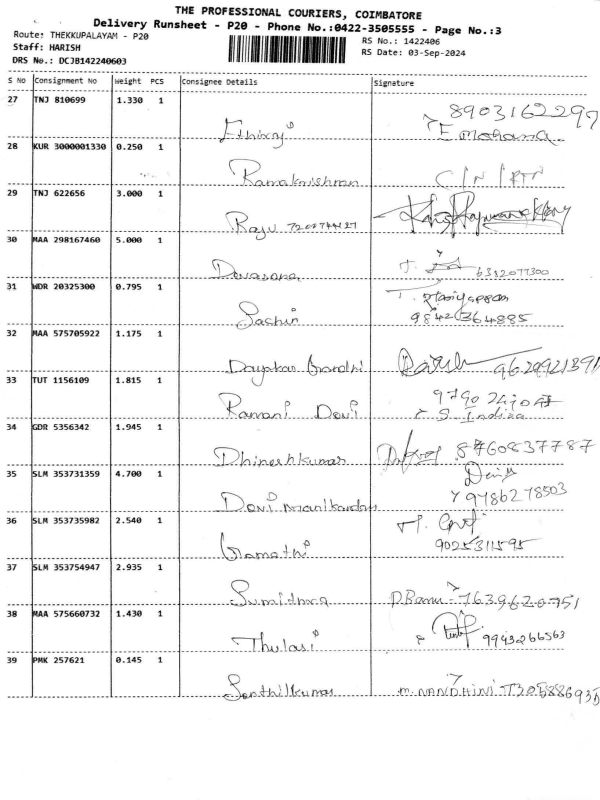 THE PROFESSIONAL COURIERS, COIMBATORE
Delivery Runsheet - P20 - Phone No.:0422-3505555 - Page No.:3
Route: THEKKUPALAYAM - P20
RS No.: 1422406
Staff: HARISH
RS Date: 03-Sep-2024
DRS No.: DCJB142240603
S No Consignment No Weight PCS Consignee Details Signature
27 TNJ 810699 1.330 1
8903162297
Ethiraj E Mohana
28 KUR 3000001330 0.250 1
Ramakrishnan
29 TNJ 622656 3.000 1
Raju
30 MAA 298167460 5.000 1
Devasana 6382077300
31 WDR 20325300 0.795 1
Sachin 9842364885
32 MAA 575705922 1.175 1
Dayakar Gandhi
33 TUT 1156109 1.815 1
Ramani Devi S. Indira
34 GDR 5356342 1.945 1
Dhineshkumar 8760837787
35 SLM 353731359 4.700 1
Devi Manikandan 9786278503
36 SLM 353735982 2.540 1
Gomathi 9025311595
37 SLM 353754947 2.935 1
Sumithra P.Banu 7639620951
38 MAA 575660732 1.430 1
Thulasi 9943266563
39 PMK 257621 0.145 1
Senthilkumar M.NANDHINI